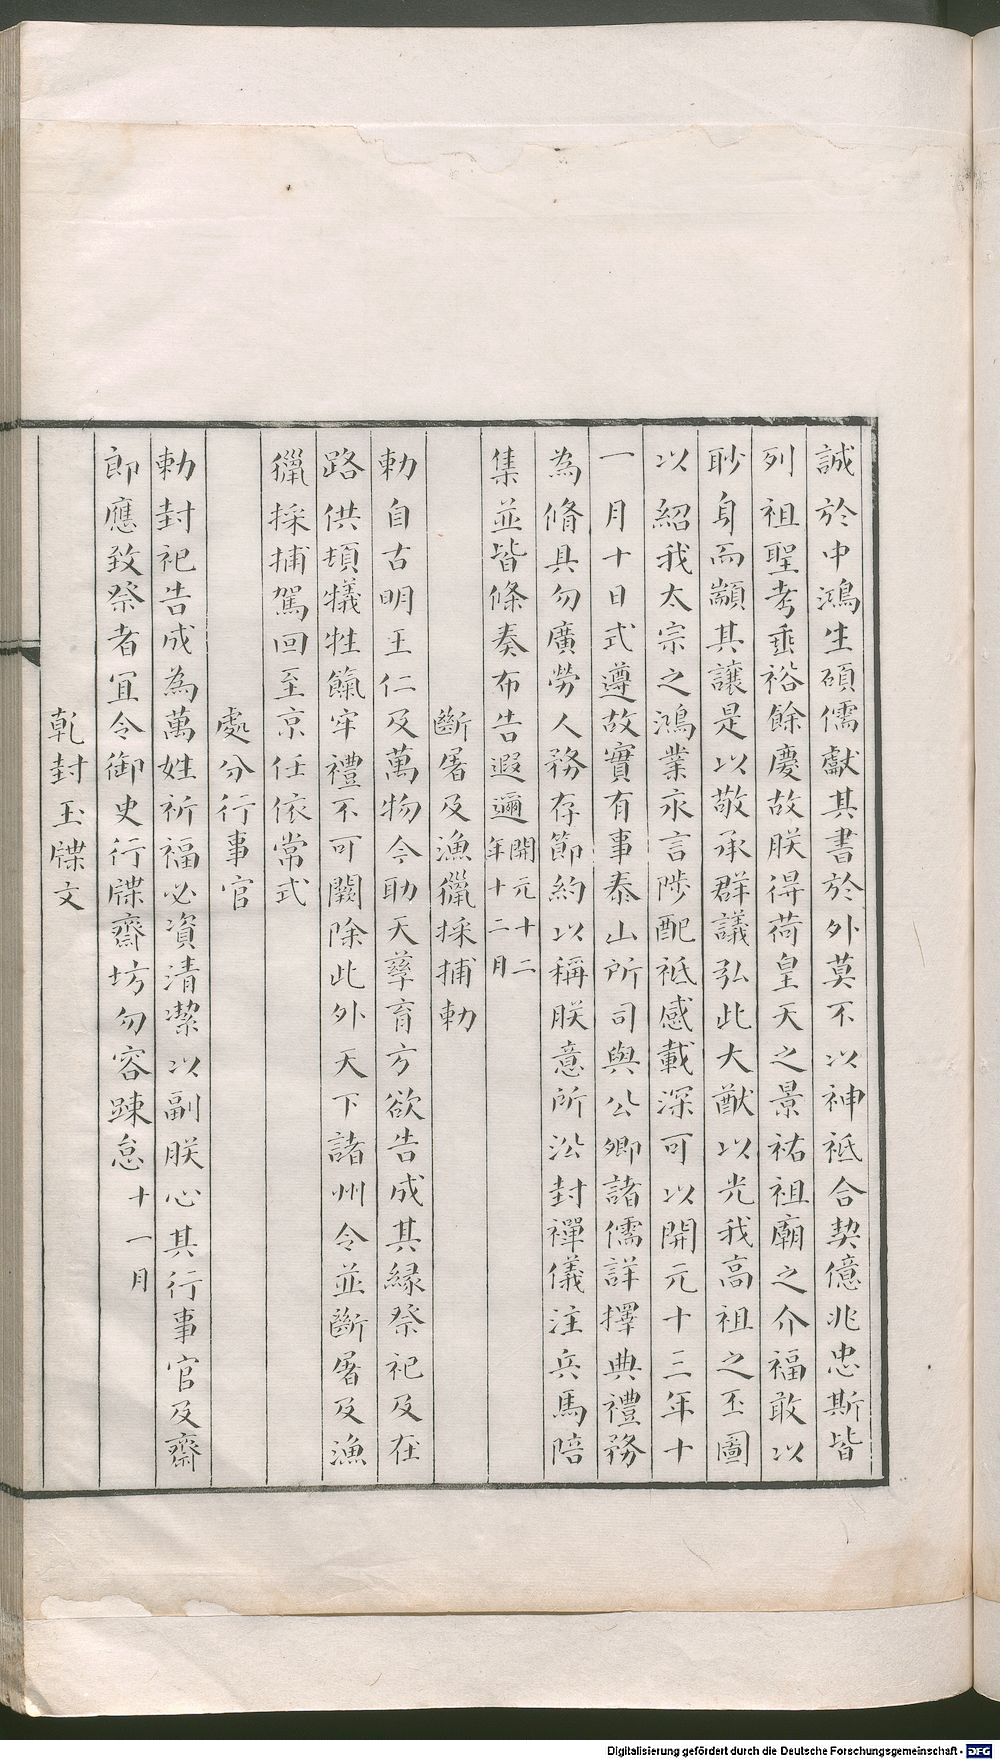 誠於中鴻生碩儒獻其書於外莫不以神祗合契億兆忠斯皆
列祖聖考垂裕餘慶故朕得荷皇天之景祐祖廟之介福敢以
眇身而顓其讓是以敬承群議弘此大猷以光我高祖之丕圖
以紹我太宗之鴻業永言陟配祗感載深可以開元十三年十
一月十日式遵故實有事泰山所司與公卿諸儒詳擇典禮務
為脩具勿廣勞人務存節約以稱朕意所㳂封禪儀注兵馬陪
集並皆條奏布告遐邇開元十二年十二月
斷屠及漁獵採捕勑
勑自古明王仁及萬物今助天孳育方欲告成其緣祭祀及在
路供頓犧牲餼牢禮不可闕除此外天下諸州令並斷屠及漁
獵採捕駕回至京任依常式
處分行事官
勑封祀告成為萬姓祈福必資清潔以副朕心其行事官及齋
郎應致祭者宜令御史行牒齋坊勿容踈怠十一月
乾封玉牒文
Digitalisierung gefördert durch die Deutsche Forschungsgemeinschaft - DFG